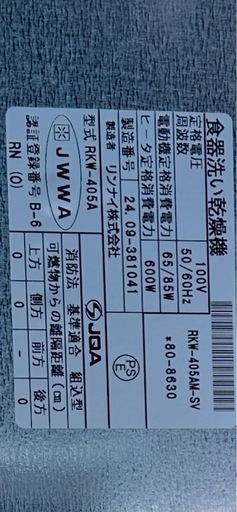 食器洗い乾燥機
定格電圧 100V
周波数 50/60Hz
電動機定格消費電力 65/85W
ヒータ定格消費電力 600W
製造番号 24.09-381041
製造者 リンナイ株式会社
型式 RKW-405A
JWWA
認証登録番号 B-6
RN (0)
RKW-405AM-SV
*80-8630
PS
E
JQA
消防法 基準適合 組込型
可燃物からの離隔距離(cm)
上方 側方 前方 後方
0 0 - 0